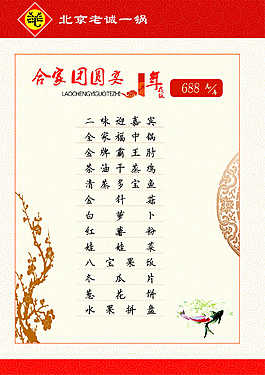 北京老诚一锅
合家团圆宴
LAOCHENGYIGUOTEZHI
年夜饭
688元/桌
二味迎嘉宾
全家福中锅
金牌霸王肘
茶油干蒸鸡
清蒸多宝鱼
金针菇
白萝卜
红薯粉
娃娃菜
八宝果饭
冬瓜片
葱花饼
水果拼盘